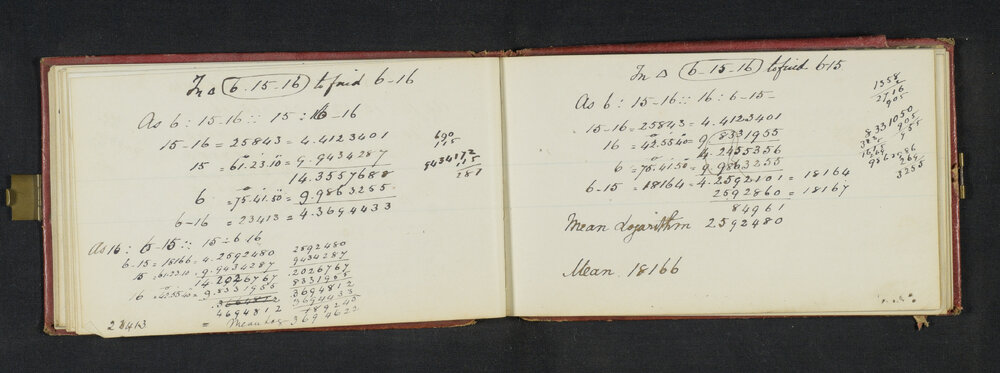 In △ (6-15-16) to find 6-16
As 6 : 15-16 :: 15 : 16-16
15-16 = 25843 = 4.4123401
15 = 61.23.10 = 9.9434287
14.3557688
6 = 75.41.50 = 9.9863255
6-16 = 23413 = 4.3694433
690
115
9434172
115
287
As 16 : 6-15 :: 15 = 6.16
6-15 = 18166 = 4.2592480
15 = 61.23.10 = 9.9434287
14.2026767
16 = 42.55.40 = 9.8331955
4694812
2592480
9434287
.2026767
8331955
.3694812
3694433
189245
= Mean Log 3694622
23413
In △ (6-15-16) to find 6 15
As 6 : 15-16 :: 16 : 6-15-
15-16 = 25843 = 4.4123401
16 = 42.55.40 = 9.8331955
4.2455356
6 = 75.41.50 = 9.9863255
6-15 = 18164 = 4.2592101 = 18164
2592860 = 18167
84961
Mean Logarithm 2592480
Mean 18166
1358
2716
905
8331050
905
955
3255